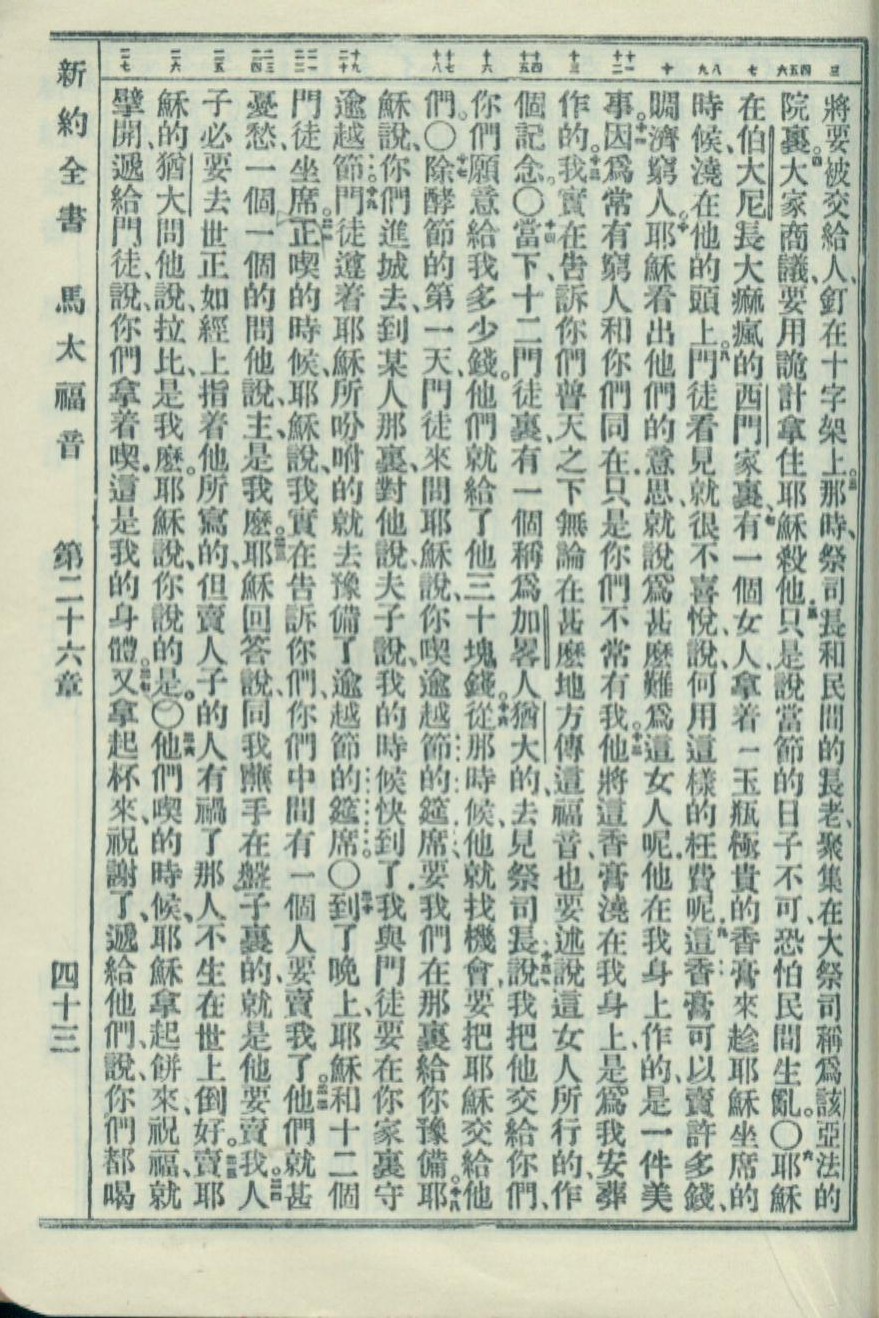 將要被交給人、釘在十字架上。那時、祭司長和民間的長老、聚集在大祭司稱爲該亞法的
院裏。大家商議、要用詭計拿住耶穌殺他。只是說、當節的日子不可、恐怕民間生亂。〇耶穌
在伯大尼、長大痲瘋的西門家裏、有一個女人、拿着一玉瓶極貴的香膏來、趁耶穌坐席的
時候、澆在他的頭上。門徒看見就很不喜悅、說、何用這樣的枉費呢。這香膏可以賣許多錢、
賙濟窮人。耶穌看出他們的意思、就說、爲甚麽難爲這女人呢。他在我身上作的、是一件美
事。因爲常有窮人和你們同在。只是你們不常有我。他將這香膏澆在我身上、是爲我安葬
作的。我實在告訴你們、普天之下、無論在甚麽地方傳這福音、也要述說這女人所行的、作
個記念。〇當下十二門徒裏、有一個稱爲加畧人猶大的、去見祭司長、說、我把他交給你們、
你們願意給我多少錢。他們就給了他三十塊錢。從那時候、他就找機會、要把耶穌交給他
們。〇除酵節的第一天、門徒來問耶穌說、你喫逾越節的筵席、要我們在那裏給你豫備。耶
穌說、你們進城去、到某人那裏、對他說、夫子說、我的時候快到了。我與門徒要在你家裏守
逾越節。門徒遵着耶穌所吩咐的、就去豫備了逾越節的筵席。〇到了晚上、耶穌和十二個
門徒坐席。正喫的時候、耶穌說、我實在告訴你們、你們中間有一個人要賣我了。他們就甚
憂愁、一個一個的問他說、主、是我麽。耶穌回答說、同我蘸手在盤子裏的、就是他要賣我。人
子必要去世、正如經上指着他所寫的。但賣人子的人有禍了、那人不生在世上倒好。賣耶
穌的猶大問他說、拉比、是我麽。耶穌說、你說的是。〇他們喫的時候、耶穌拿起餅來、祝福、就
擘開、遞給門徒、說、你們拿着喫。這是我的身體。又拿起杯來、祝謝了、遞給他們、說、你們都喝
新約全書　馬太福音　第二十六章　四十三